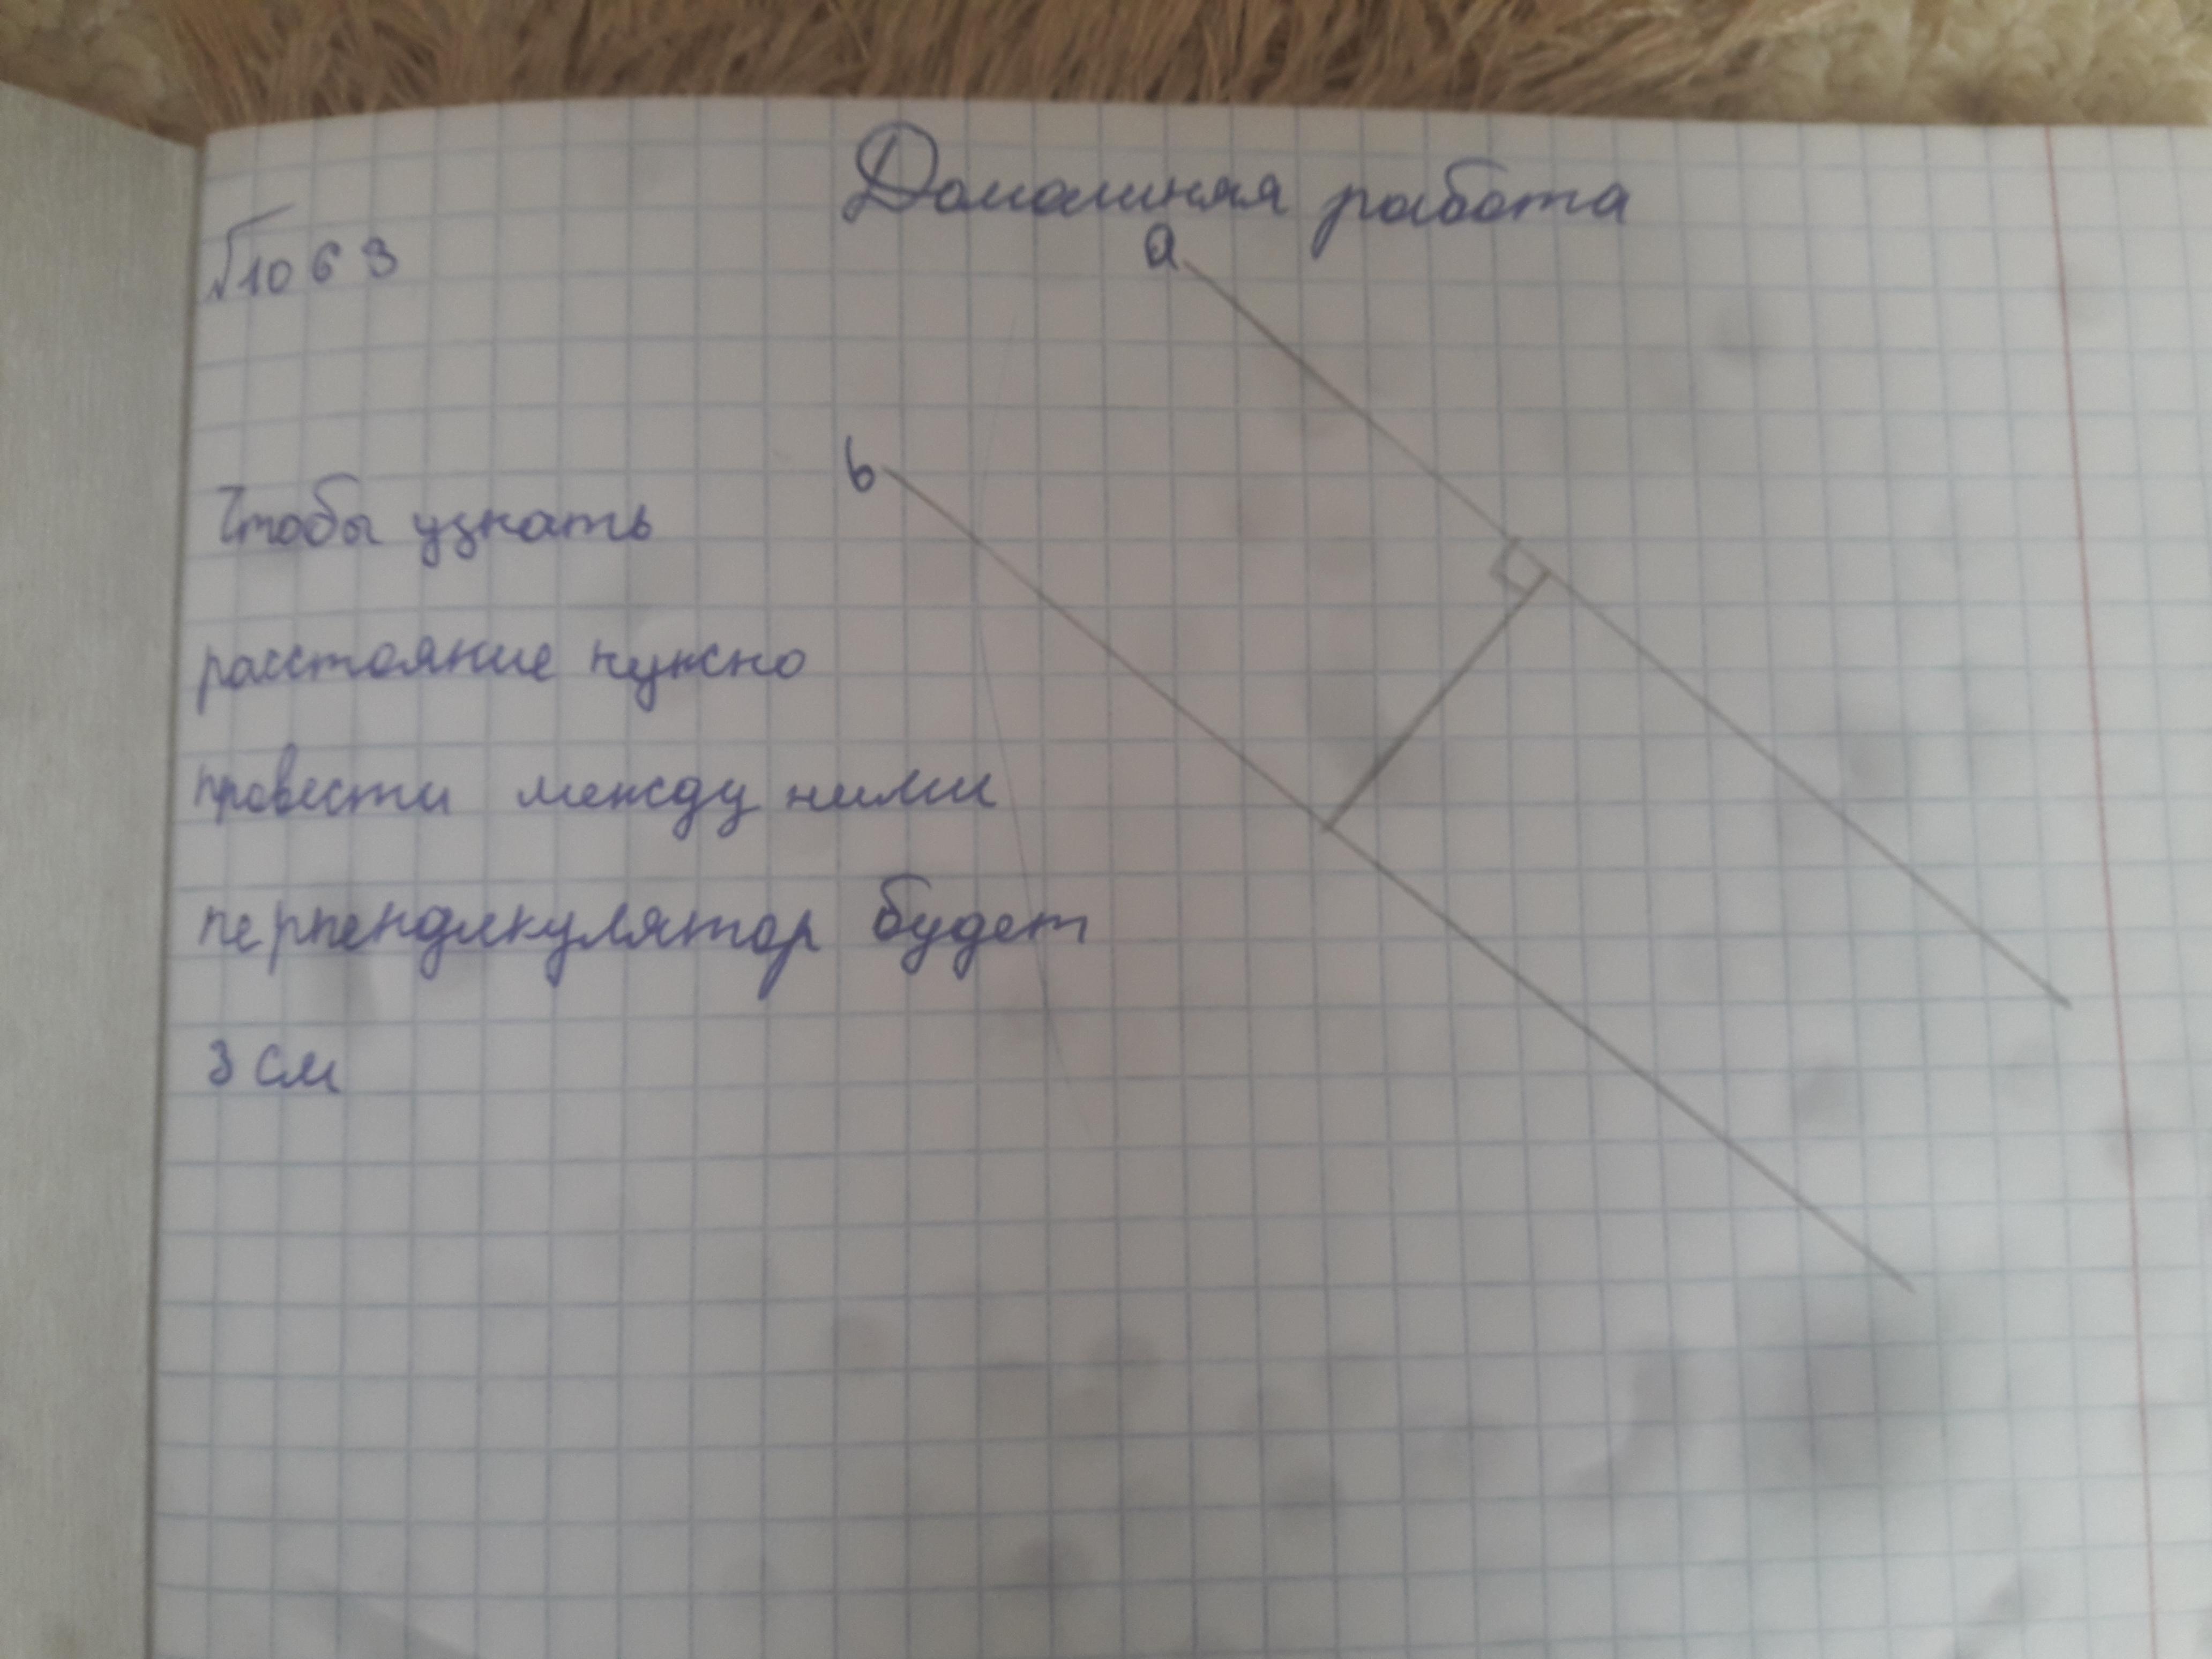 Домашняя работа
√1063
a
b
Чтобы узнать
расстояние нужно
провести между ними
перпендикулятор будет
3 см